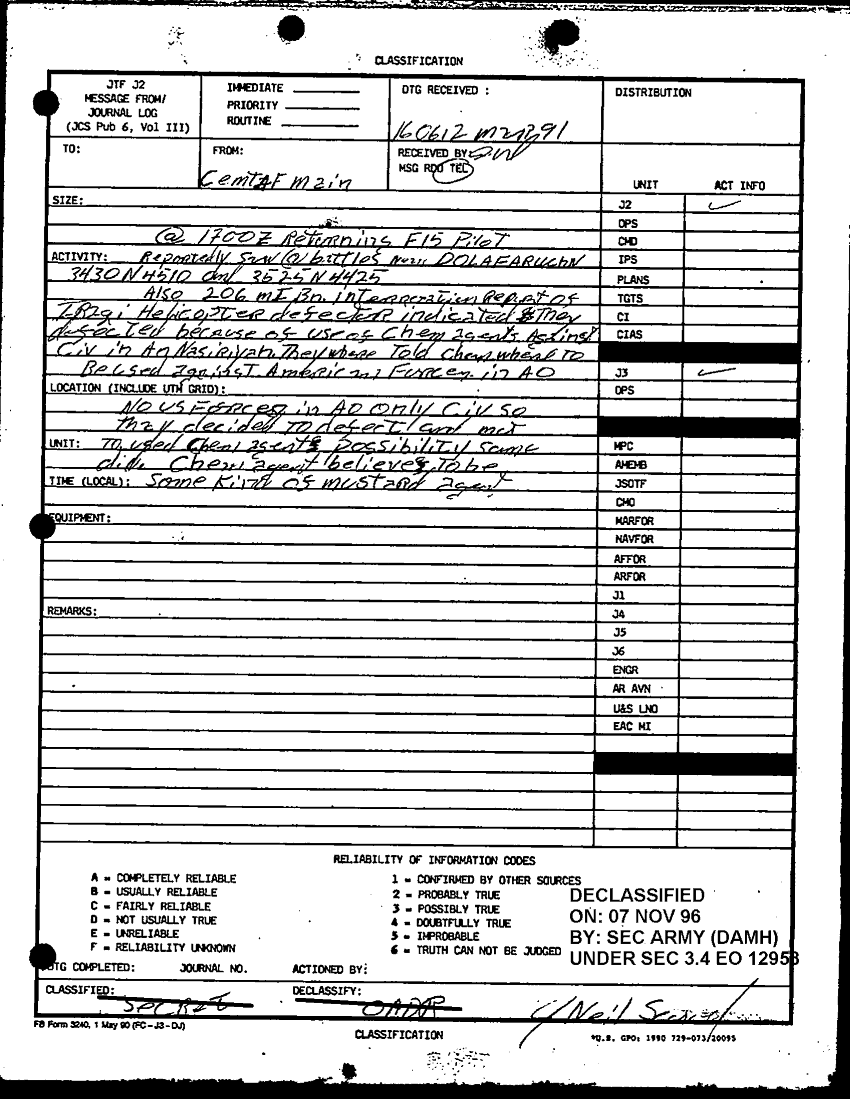 CLASSIFICATION
JTF J2
MESSAGE FROM/
JOURNAL LOG
(JCS Pub 6, Vol III)
IMMEDIATE
PRIORITY
ROUTINE
DTG RECEIVED :
160612 mar91
DISTRIBUTION
TO:
FROM:
CentAF main
RECEIVED BY:
MSG RDO TEL
UNIT ACT INFO
SIZE:
@ 1700Z Returning F15 Pilot
ACTIVITY: Reportedly saw @ battles near DOLAFARUCHN
3430N4510 and 3525N4425
Also 206 mI Bn interogeration Report of
IRaqi Helicopter defector indicated they
defected because of use of Chem agents Against
Civ in An Nasiriyah. They where Told Chem where to
Be used against American Forces in AO
LOCATION (INCLUDE UTM GRID):
No US Forces in AO only Civ so
they decided to defect and not
UNIT: to used Chem agents possibility same
did. Chem agent believes to be
TIME (LOCAL): Some Kind of mustard agent
EQUIPMENT:
REMARKS:
J2
OPS
CMD
IPS
PLANS
TGTS
CI
CIAS
J3
OPS
MPC
AMEMB
JSOTF
CMO
MARFOR
NAVFOR
AFFOR
ARFOR
J1
J4
J5
J6
ENGR
AR AVN
U&S LNO
EAC MI
RELIABILITY OF INFORMATION CODES
A = COMPLETELY RELIABLE
B = USUALLY RELIABLE
C = FAIRLY RELIABLE
D = NOT USUALLY TRUE
E = UNRELIABLE
F = RELIABILITY UNKNOWN
1 = CONFIRMED BY OTHER SOURCES
2 = PROBABLY TRUE
3 = POSSIBLY TRUE
4 = DOUBTFULLY TRUE
5 = IMPROBABLE
6 = TRUTH CAN NOT BE JUDGED
DECLASSIFIED
ON: 07 NOV 96
BY: SEC ARMY (DAMH)
UNDER SEC 3.4 EO 12958
DTG COMPLETED: JOURNAL NO. ACTIONED BY:
CLASSIFIED: SECRET
DECLASSIFY: OADR
Neil
FB Form 3240, 1 May 90 (FC-J3-DJ)
CLASSIFICATION
*U.S. GPO: 1990 729-073/20095